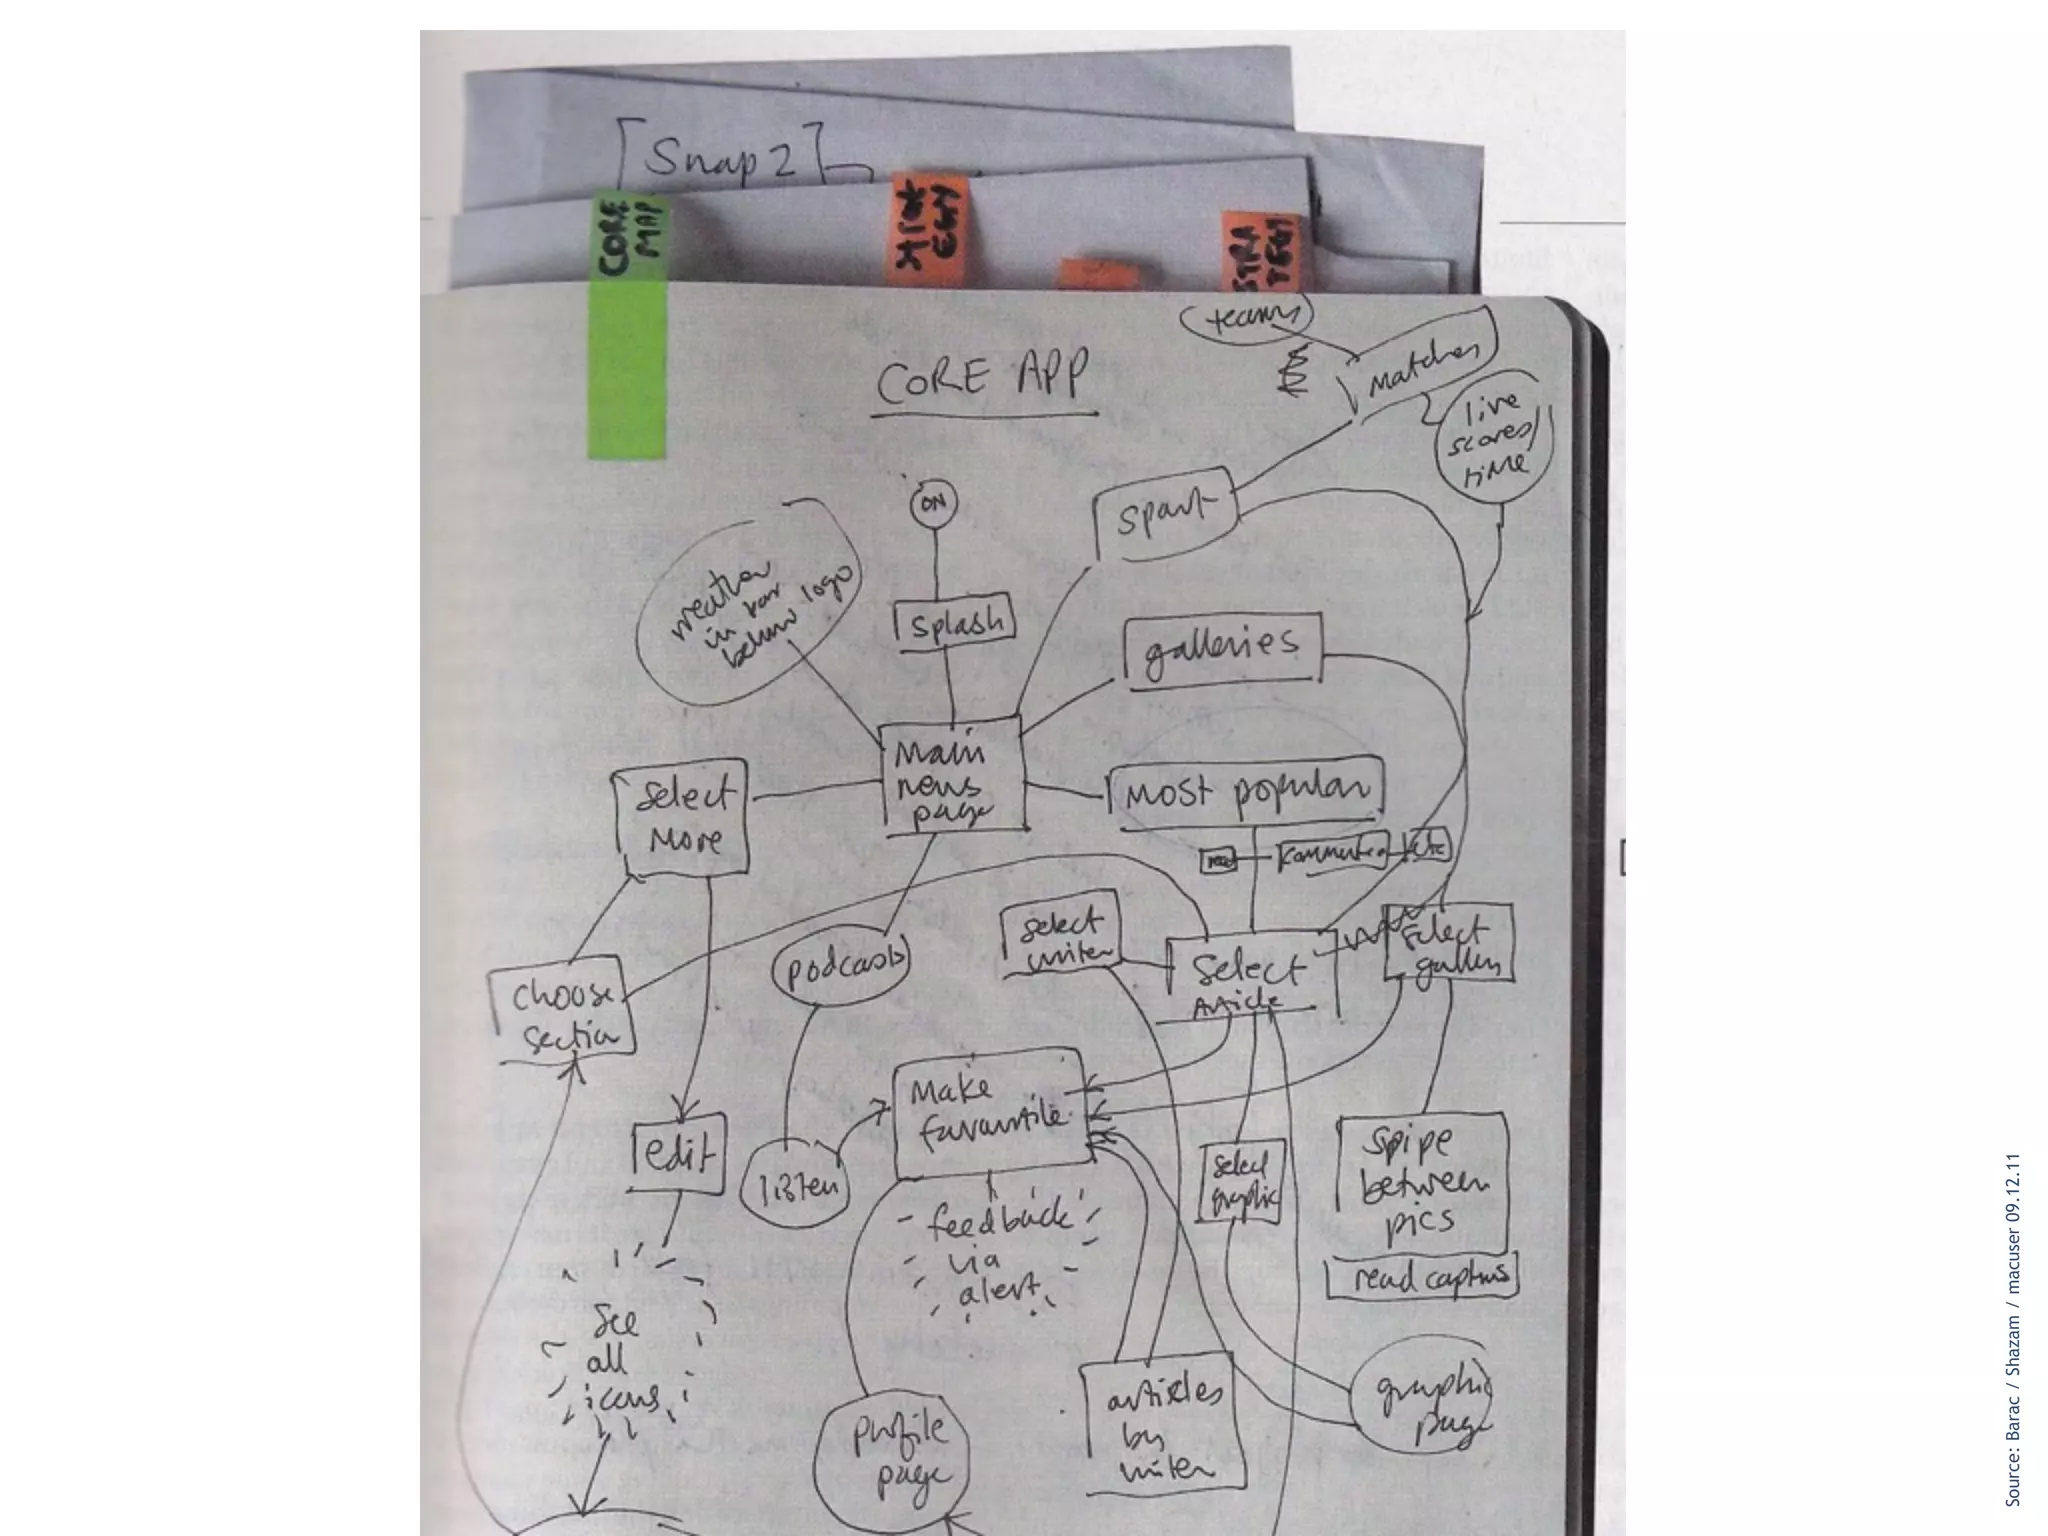 [Snap 2]
CORE
MAP
STRAT
EGY
STRA
TEGY
CORE APP
teams
Matches
live
scores/
time
ON
Sport
weather
in bar
below logo
Splash
galleries
Main
news
page
Select
More
MOST popular
read
commented
select
writer
Select
gallery
podcasts
Select
Article
Choose
Section
Make
favourtile
edit
listen
select
graphic
Spipe
between
pics
read captions
feedback
via
alert
See
all
icons
articles
by
writer
graphic
page
profile
page
Source: Barac / Shazam / macuser 09.12.11